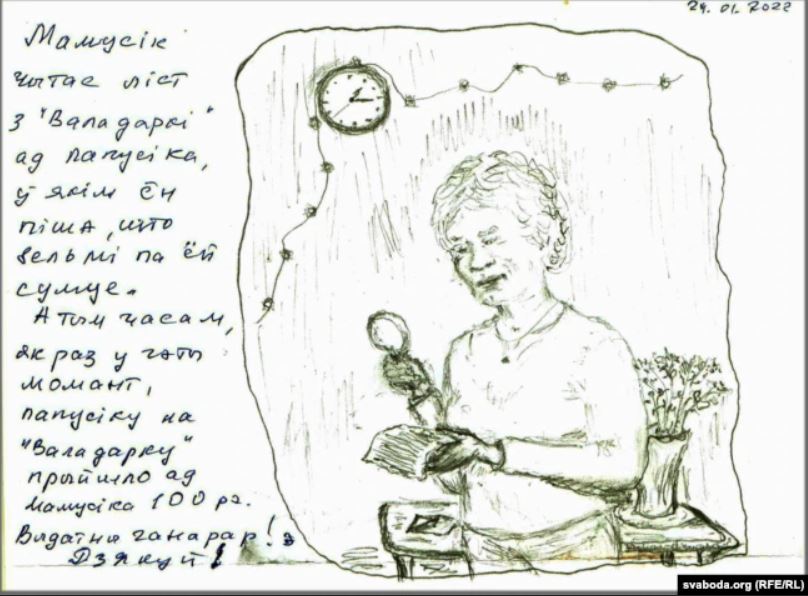 24. 01. 2022
Мамусік
чытае ліст
з "Валадаркі"
ад папусіка,
ў якім ён
піша, што
вельмі па ёй
сумуе.
А тым часам,
як раз у гэты
момант,
папусіку на
"Валадарку"
прыйшло ад
мамусіка 100 рэ.
Выдатны ганарар!
Дзякуй!
svaboda.org (RFE/RL)